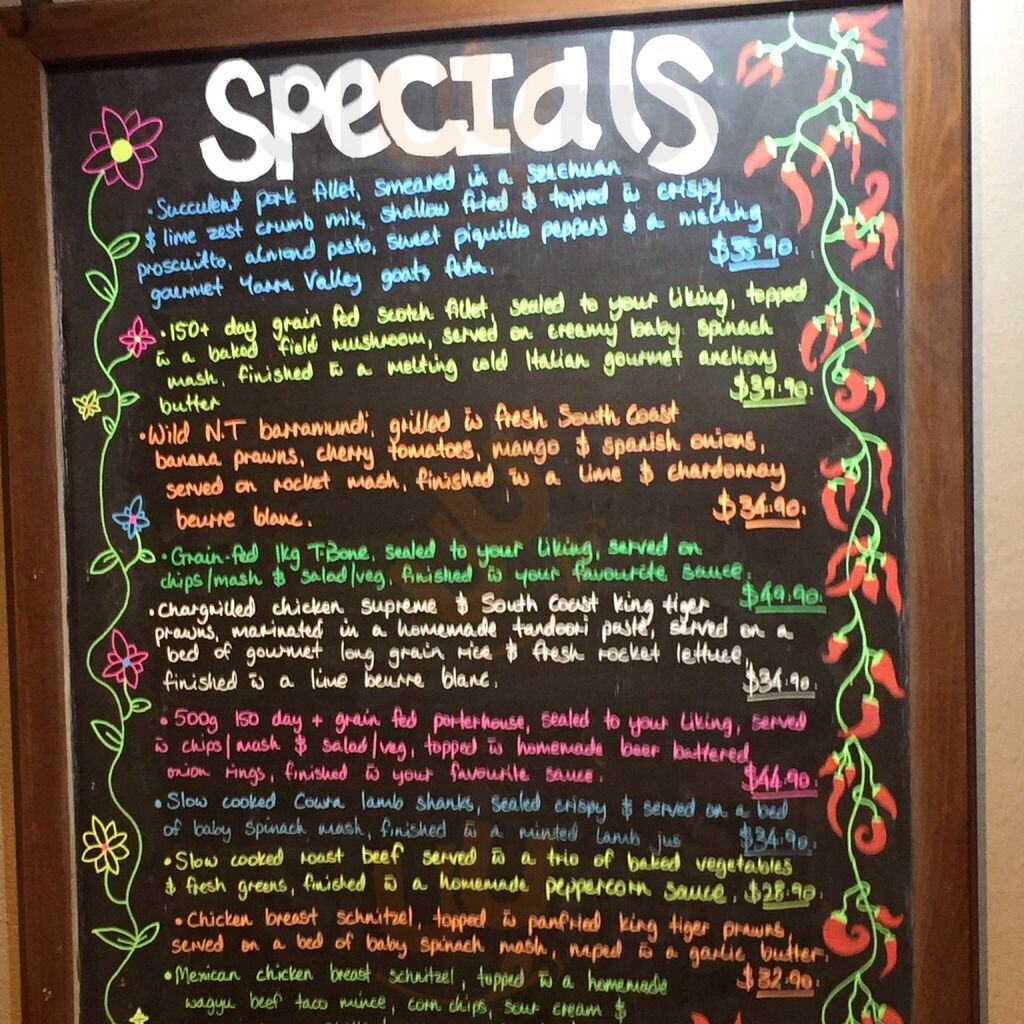 Specials
• Succulent pork fillet, smeared in a szechuan
$ lime zest crumb mix, shallow fried $ topped w crispy
prosciutto, almond pesto, sweet piquillo peppers $ a melting
gourmet Yarra Valley goats feta.
$35.90.
• 150+ day grain fed scotch fillet, sealed to your liking, topped
w a baked field mushroom, served on creamy baby spinach
mash, finished w a melting cold Italian gourmet anchovy
butter
$39.90.
• Wild N.T barramundi, grilled w fresh South Coast
banana prawns, cherry tomatoes, mango $ spanish onions,
served on rocket mash, finished w a lime $ chardonnay
beurre blanc.
$34.90.
• Grain-fed 1kg T-Bone, sealed to your liking, served on
chips/mash $ salad/veg, finished w your favourite sauce.
$49.90.
• Chargrilled chicken supreme $ South Coast king tiger
prawns, marinated in a homemade tandoori paste, served on a
bed of gourmet long grain rice $ fresh rocket lettuce,
finished w a lime beurre blanc.
$34.90.
• 500g 150 day + grain fed porterhouse, sealed to your liking, served
w chips/mash $ salad/veg, topped w homemade beer battered
onion rings, finished w your favourite sauce.
$44.90.
• Slow cooked Cowra lamb shanks, sealed crispy $ served on a bed
of baby spinach mash, finished w a minted lamb jus $34.90.
• Slow cooked roast beef served w a trio of baked vegetables
$ fresh greens, finished w a homemade peppercorn sauce. $28.90.
• Chicken breast schnitzel, topped w panfried king tiger prawns,
served on a bed of baby spinach mash, naped w a garlic butter.
$32.90.
• Mexican chicken breast schnitzel, topped w a homemade
wagyu beef taco mince, corn chips, sour cream $